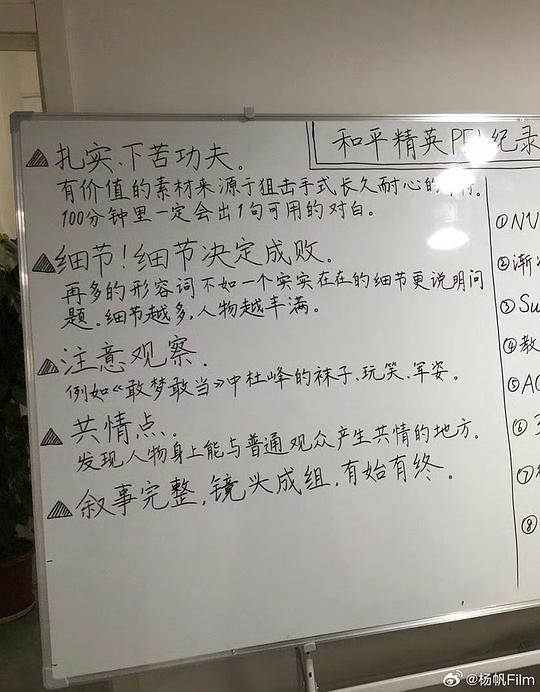 和平精英PEL纪录
扎实、下苦功夫。
有价值的素材来源于狙击手式长久耐心的
100分钟里一定会出1句可用的对白。
细节!细节决定成败。
再多的形容词不如一个实实在在的细节更说明问
题。细节越多,人物越丰满。
注意观察.
例如《敢梦敢当》中杜峰的袜子、玩笑、军姿。
共情点。
发现人物身上能与普通观众产生共情的地方。
叙事完整,镜头成组,有始有终。
①NV
②渐
③Su
④教
⑤AC
⑥
⑦
⑧
@杨帆Film